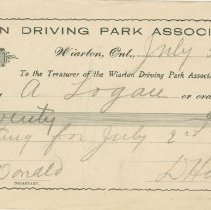 N DRIVING PARK ASSOC
Wiarton, Ont., July
To the Treasurer of the Wiarton Driving Park Assoc
A Logan or or
for July 2nd
Donald
SECRETARY.